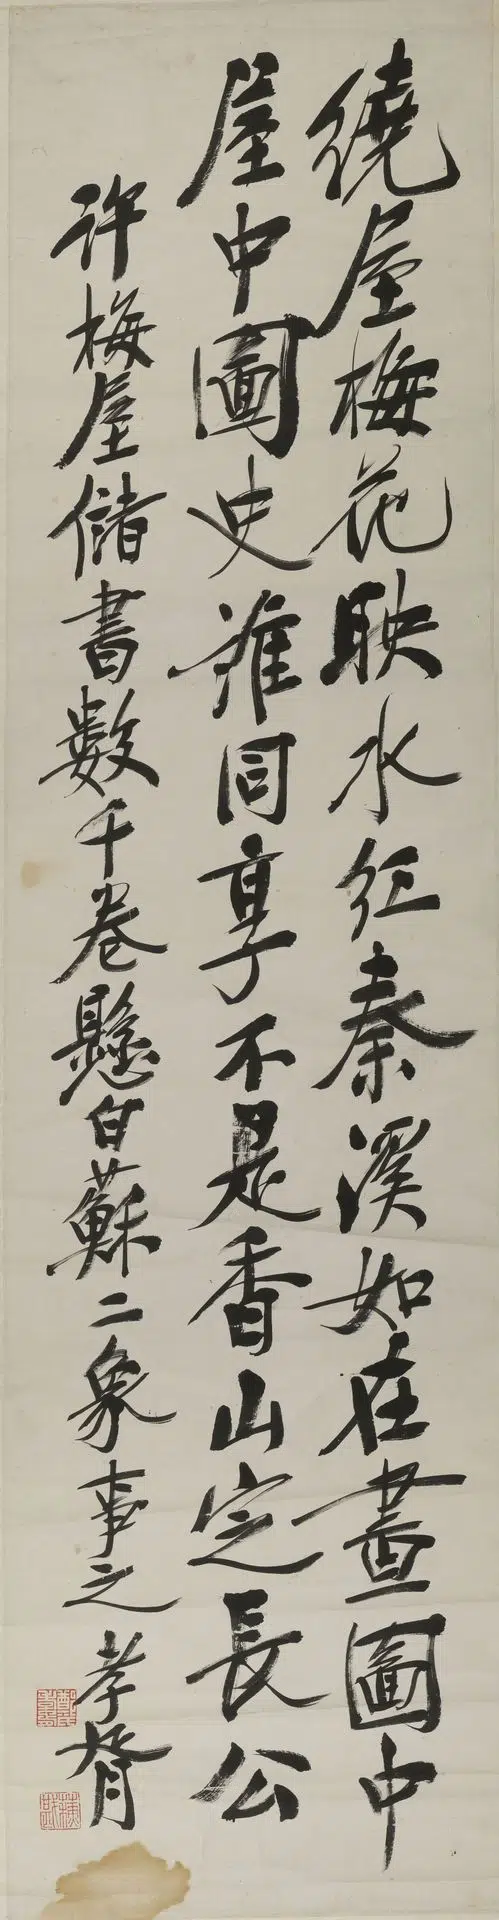 繞屋梅花映水紅秦溪如在畫圖中
屋中圖史誰同享不是香山定長公
許梅屋儲書數千卷懸白蘇二象事之 孝胥